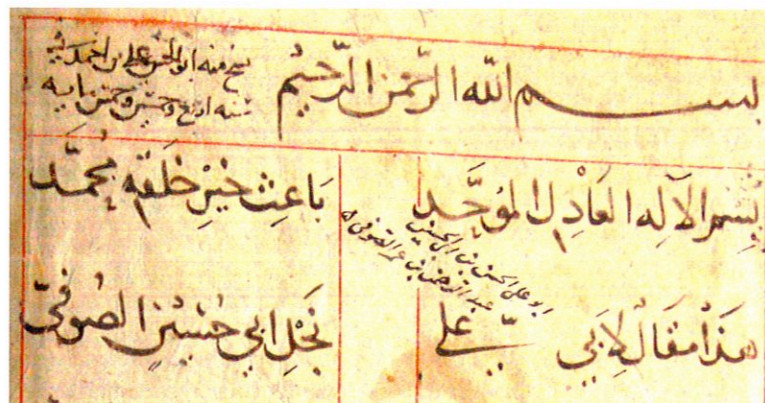 بسم الله الرحمن الرحيم
نسخ منه ابو الحسن علي بن احمد
سنه اربع وخمسين وخمس مايه
بِسْمِ الآلِه العَادِل المُوَحَّد بَاعِث خَيْرِ خَلقِه مُحمَّد
ابو علي الحسين بن ابي الحسين
عبد الرحمن بن عمر الصوفي
هَذَا مَقَالٌ لِابَي عَلي نَجْلِ ابي حُسَيْنِ الصُوفيّ